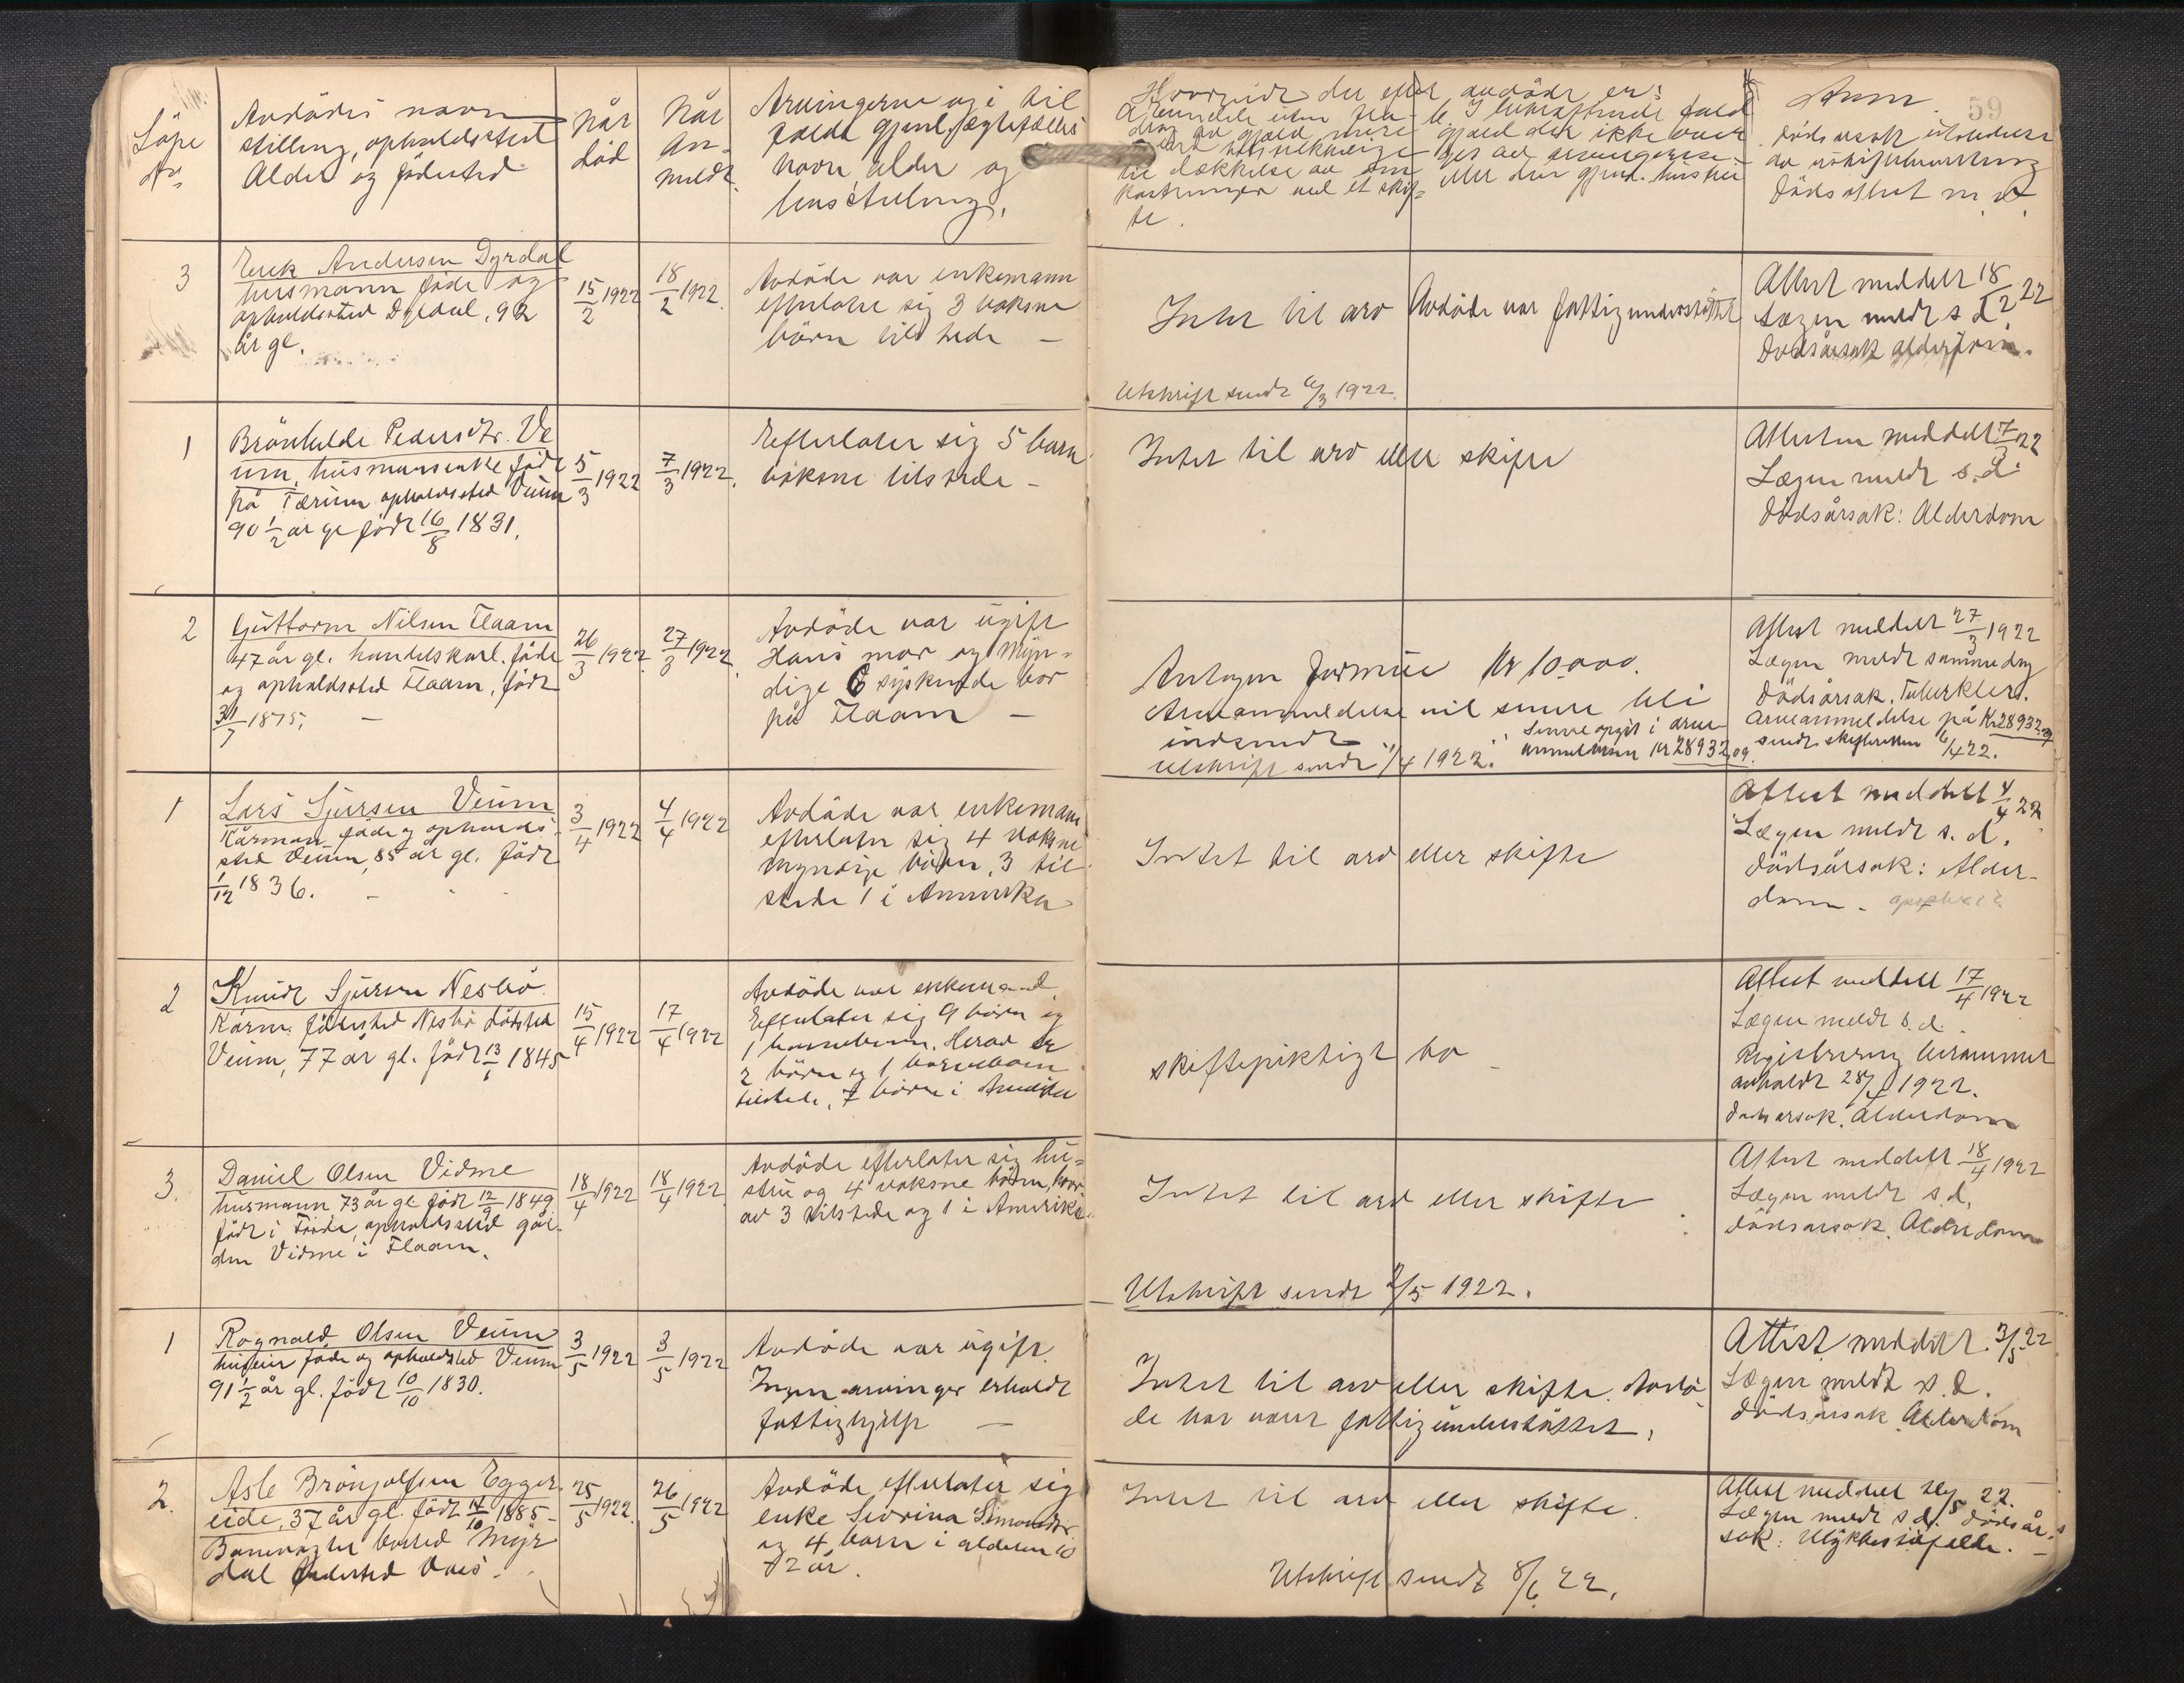 59
Löpe
No
Avdödes navn
stilling, opholdssted
Alder og födested
Når
död
Når
an-
meldt.
Arvingerne og i til
fælde gjenl. ægtefælles
navn, alder og
livsstilling.
Hvorvidt der efter avdöde er:
a
til dækkelse av om
kostninger ved et skif=
te.
b. I bekræftende fald
gjæld der ikke over
tages av arvingerne
eller den gjenl.
Anm.
Dödsårsak utsendelse
av
Dödsattest m. v.
3
Erik Andersen Dyrdal
husmann föde og
opholdssted Dyrdal, 92
år gl.
15/2 1922
18/2 1922.
Avdöde var enkemann
efterlater sig 3 voksne
börn tilstede —
Intet til arv
Avdöde var fattigunderstöttet
Attest meddelt 18/2 22
Lægen meldt s d.
Dödsårsak alderdom.
Utskrift sendt 6/3 1922.
1
Brönhilde Pedersdtr. Ve
um, husmannsenke födt
på Tærum opholdssted Veum
90 1/2 år gl födt 16/8 1831.
5/3 1922
7/3 1922.
Efterlater sig 5 barn
voksne tilstede —
Intet til arv eller skifte
Attesten meddelt 7/3 22
Lægen meldt s. d.
Dödsårsak: Alderdom
2
Guttorm Nilsen Flaam
47 år gl. handelskarl. föde
og opholdssted Flaam, födt
1875. —
26/3 1922
27/3 1922.
Avdöde var ugift
Hans mor og myn=
dige 6 syskende bor
på Flaam —
Antagen formue Kr 10000.
Arveanmeldelse vil senere bli
indsendt
Senere opgit i arve
anmeldelsen Kr 28932,09.
Utskrift sendt 1/4 1922.
Attest meddelt 27/3 1922
Lægen meldt samme dag
Dödsårsak. Tuberkler.
Arveanmeldelse på Kr. 28932,09
sendt skifteretten 6/4 22.
1
Lars Sjursen Veum
Kårman föde og opholds-
sted Veum, 85 år gl. födt
1/12 1836. —
3/4 1922
4/4 1922
Avdöde var enkemann
efterlater sig 4 voksne
myndige börn, 3 til
stede 1 i Amerika
Intet til arv eller skifte
Attest meddelt 4/4 22
Lægen meldt s. d.
Dödsårsak: Alder-
dom.
2
Knudt Sjursen Nesbö
Kårm. födested Nesbö dödsted
Veum, 77 år gl. födt 1845
15/4 1922
17/4 1922
Avdöde var enkemand.
Efterlater sig 9 börn og
1 barnebarn. Herav er
2 börn og 1 barnebarn
tilstede, 7 börn i Amerika
skiftepliktigt bo —
Attest meddelt 17/4 1922
Lægen meldt s. d.
Registrering
avholdt 28/4 1922.
Dödsårsak. Alderdom
3.
Daniel Olsen Vidme
husmann 73 år gl födt 12/9 1849
födt i opholdssted går-
den Vidme i Flaam.
18/4 1922
18/4 1922
Avdöde efterlater sig hu=
stru og 4 voksne börn, hvor
av 3 tilstede og 1 i Amerika.
Intet til arv eller skifte
Attest meddelt 18/4 1922
Lægen meldt s.d.
Dödsårsak. Alderdom
Utskrift sendt 2/5 1922.
1
Rognald Olsen Veum
föde og opholdssted Veum
91 1/2 år gl. födt 10/10 1830.
3/5 1922
3/5 1922
Avdöde var ugift.
Ingen arvinger erholdt
fattighjelp —
Intet til arv eller skifte. Avdö
de har været fattigunderstöttet.
Attest meddelt 3/5 22
Lægen meldt s. d.
Dödsårsak Alderdom
2.
Asle Brönjolfsen Egger
eide, 37 år gl. födt 14/10 1885 —
Banevogter bosted Myr
dal födested Voss.
25/5 1922.
26/5 1922
Avdöde efterlater sig
enke Severina Simonsdtr.
og 4 barn i alderen 10
- 2 år.
Intet til arv eller skifte.
Attest meddelt 22.
Lægen meldt s. d. Dödsår-
sak: Ulykkestilfælde. —
Utskrift sendt 8/6 22.